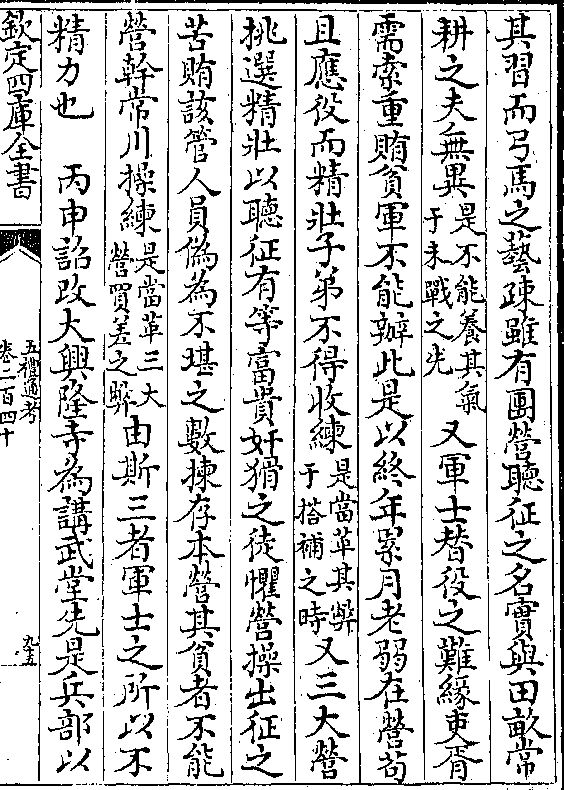 其習而弓馬之藝疎雖有團營聽征之名實與田畝常
耕之夫無異是不能養其氣于未戰之先又軍士替役之難緣吏胥
需索重賄貧軍不能辦此是以終年累月老弱在營苟
且應役而精壯子弟不得收練是當革其弊于搭補之時又三大營
挑選精壯以聽征有等富貴奸猾之徒懼營操出征之
苦賄該管人員偽為不堪之數揀存本營其貧者不能
營幹常川操練是當革三大營買差之弊由斯三者軍士之所以不
精力也　丙申詔改大興隆寺為講武堂先是兵部以
欽定四庫全書
五禮通考
卷二百四十
九五